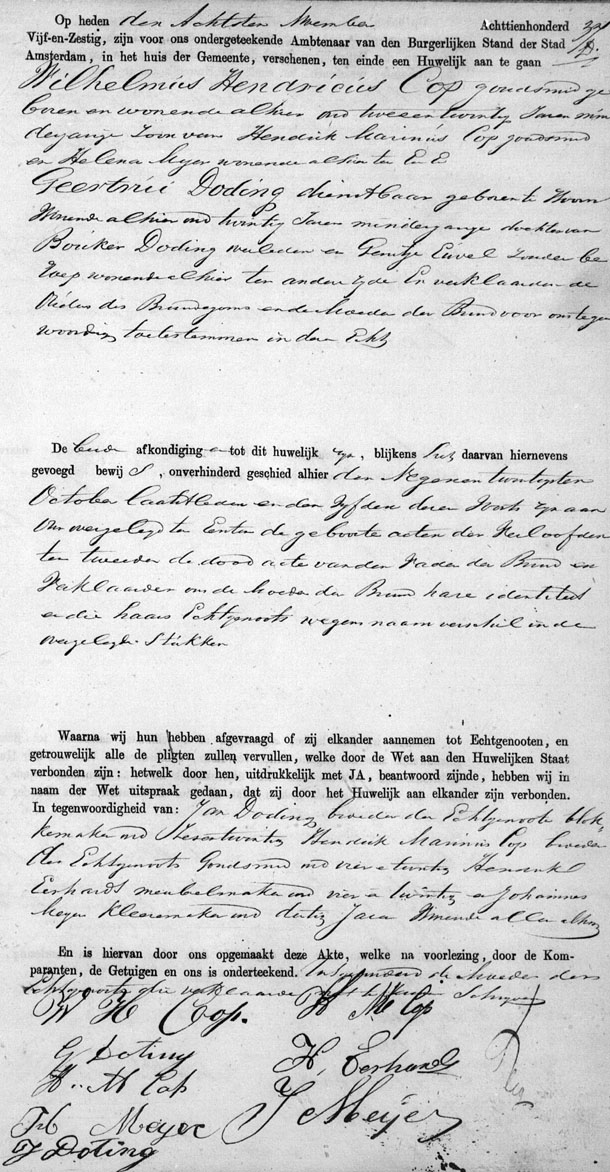 Op heden den Achtsten November Achttienhonderd
Vijf-en-Zestig, zijn voor ons ondergeteekende Ambtenaar van den Burgerlijken Stand der Stad
Amsterdam, in het huis der Gemeente, verschenen, ten einde een Huwelijk aan te gaan
Wilhelmus Hendricus Cop goudsmid ge
boren en wonende alhier oud tweeentwintig Jaren min
derjarige Zoon van Hendrik Marinus Cop goudsmid
en Helena Meyer wonende alhier ter
Geertrui Doding dienstbaar geboren te Hoorn
Wonende alhier oud twintig Jaren minderjarige dochter van
Bouker Doding overleden en Gerritje Euvel Zonder be
roep wonende alhier ter andere zyde En verklaarden de
Ouders des Bruidegoms en de Moeder der Bruid voor ons tegen
woordig toetestemmen in deze Echt
De beide afkondigingen tot dit huwelijk zyn, blijkens het daarvan hiernevens
gevoegd bewijs, onverhinderd geschied alhier den Negenentwintigsten
October laatstleden en den Vyfden dezer Voorts zyn aan
Ons overgelegd ten Eersten de geboorte acten der Verloofden
ten tweeden de dood acte van den Vader der Bruid en
Verklaarden ons de Moeder der Bruid hare identiteit
en die haars Echtgenoots wegens naam verschil in de
overgelegde Stukken
Waarna wij hun hebben afgevraagd of zij elkander aannemen tot Echtgenooten, en
getrouwelijk alle de pligten zullen vervullen, welke door de Wet aan den Huwelijken Staat
verbonden zijn: hetwelk door hen, uitdrukkelijk met JA, beantwoord zijnde, hebben wij in
naam der Wet uitspraak gedaan, dat zij door het Huwelijk aan elkander zijn verbonden.
In tegenwoordigheid van: Jan Doding broeder der Echtgenoote blok
kemaker oud Zesentwintig Hendrik Marinus Cop broeder
des Echtgenoots Goudsmid oud vier en twintig Hendrik
Eerhardt meubelmaker oud vier en twintig en Johannes
Meyer Kleeremaker oud dertig Jaren Wonende allen alhier
En is hiervan door ons opgemaakt deze Akte, welke na voorlezing, door de Kom-
paranten, de Getuigen en ons is onderteekend. de Moeder der
Echtgenoote die verklaarde niet te kunnen Schryven
W H Cop. H M Cop
G Doting H, Eerhardt
H. M Cop
J Meijer
Meyer
J Doting